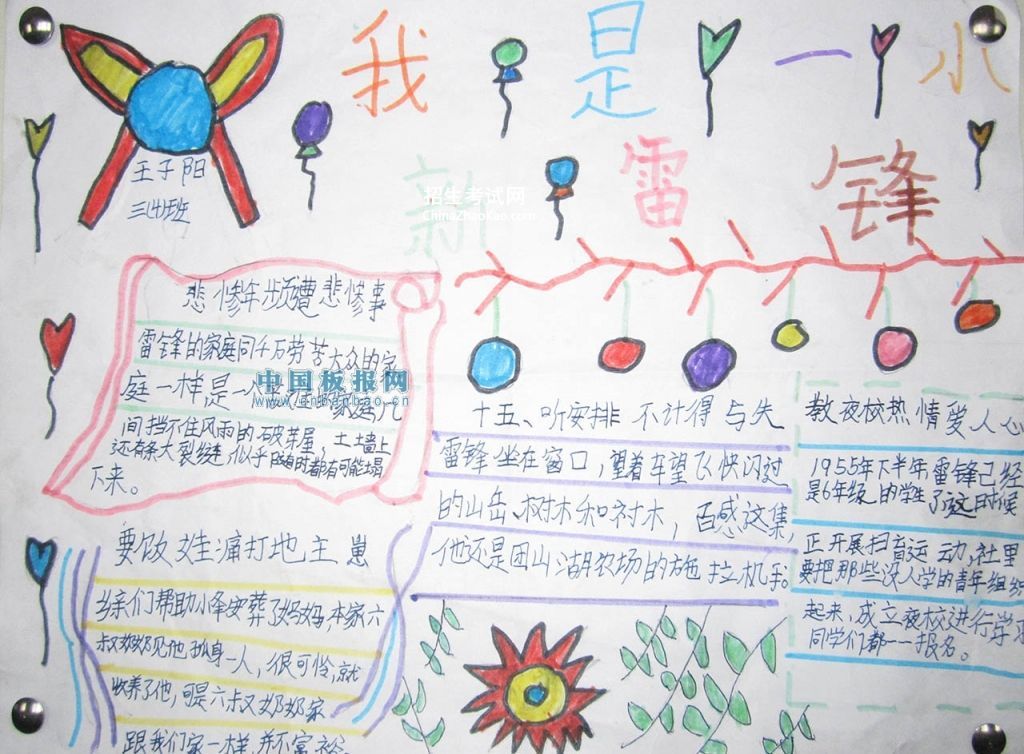 我是一小
新雷锋
王子阳
三(4)班
招生考试网
ChinaZhaoKao.com
悲惨年频遭悲惨事
雷锋的家庭同千万劳苦大众的家
庭一样是一
间挡不住风雨的破芽屋，土土墙上
还有条大裂缝似乎随时都有可能塌
下来。
中国板报网
www.cnbanbao.cn
十五、听安排 不计得与失
雷锋坐在窗口，望着车望飞快闪过
的山岳、树木和衬木，百感这集，
他还是团山湖农场的施拉机手
教夜校热情爱人心
1955年下半年雷锋已经
是6年级的学生了这时候
正开展扫盲运动，社里
要把那些没入学的青年组织
起来，成立夜校进行学习
同学们都一一报名。
要饭 痛打地主崽
乡亲们帮助小 安葬了妈妈，本家六
叔奶奶见他孤身一人，很可怜，就
收养了他，可是六叔奶奶家
跟我们家一样，并不富裕。